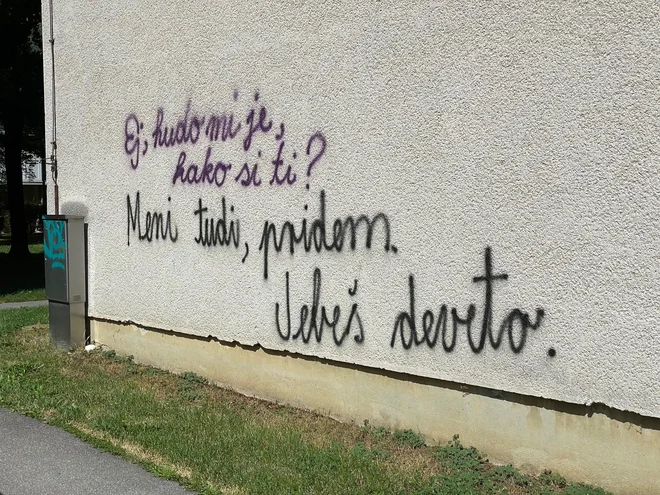 Ej, hudo mi je,
kako si ti?
Meni tudi, pridem.
Jebeš deveto.